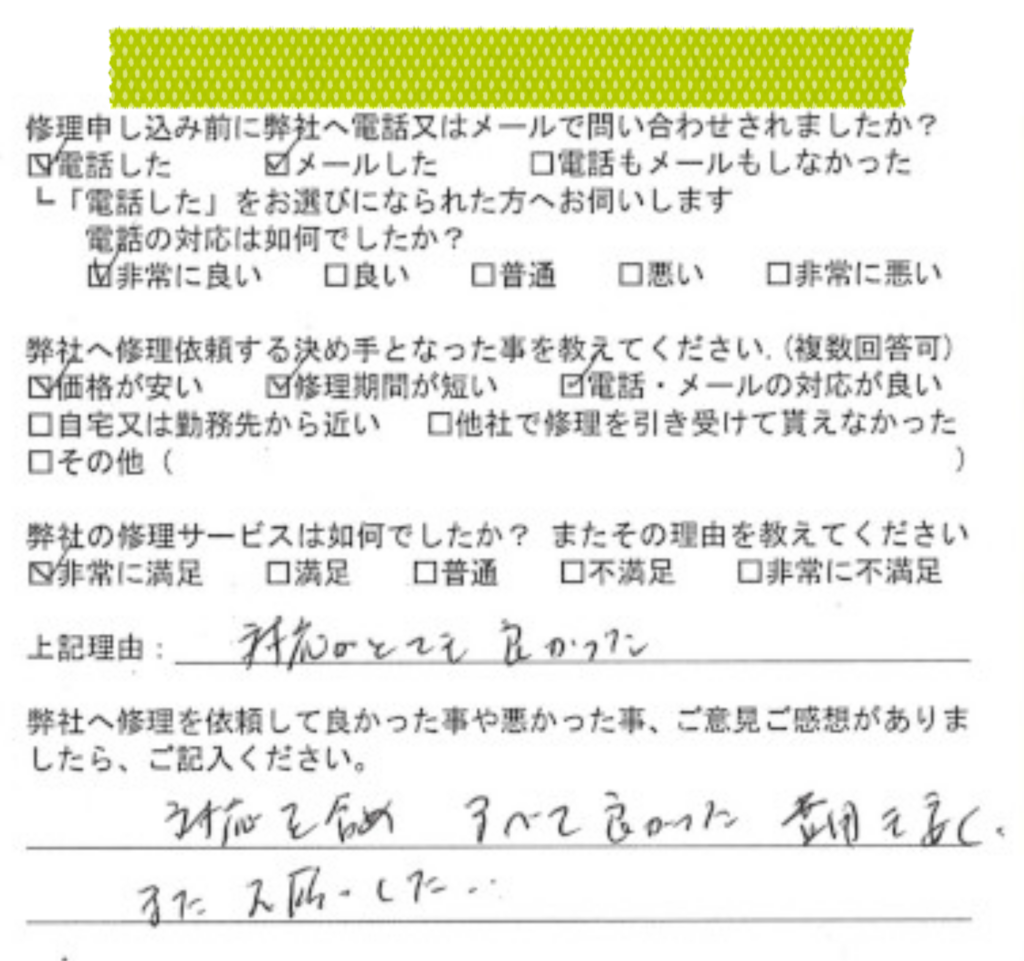 修理申し込み前に弊社へ電話又はメールで問い合わせされましたか？
☑電話した ☑メールした □電話もメールもしなかった
┗「電話した」をお選びになられた方へお伺いします
電話の対応は如何でしたか？
☑非常に良い □良い □普通 □悪い □非常に悪い
弊社へ修理依頼する決め手となった事を教えてください.（複数回答可）
☑価格が安い ☑修理期間が短い ☑電話・メールの対応が良い
□自宅又は勤務先から近い □他社で修理を引き受けて貰えなかった
□その他（ ）
弊社の修理サービスは如何でしたか？ またその理由を教えてください
☑非常に満足 □満足 □普通 □不満足 □非常に不満足
上記理由： 対応がとても良かった
弊社へ修理を依頼して良かった事や悪かった事、ご意見ご感想がありま
したら、ご記入ください。
対応を含め すべて良かった 費用も安く、
また したい